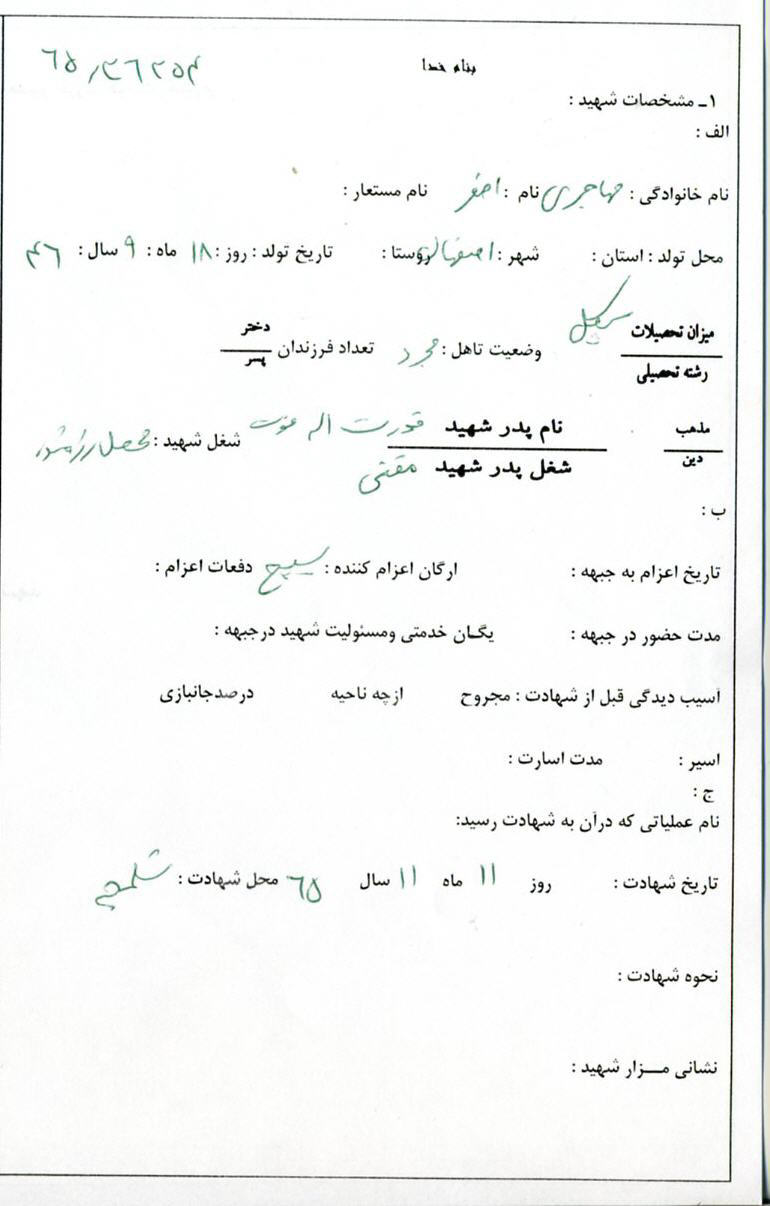 بنام خدا
۱ـ مشخصات شهید :
الف :
نام خانوادگی : مهاجری نام : اصغر نام مستعار :
محل تولد : استان : شهر : اصفهان روستا : تاریخ تولد : روز : ۱۸ ماه : ۹ سال : ۴۶
میزان تحصیلات سیکل
رشته تحصیلی
وضعیت تاهل : مجرد تعداد فرزندان دختر
پسر
مذهب
دین
نام پدر شهید قدرت اله
شغل پدر شهید مقنی
شغل شهید : محصل
ب :
تاریخ اعزام به جبهه : ارگان اعزام کننده : بسیج دفعات اعزام :
مدت حضور در جبهه : یگان خدمتی ومسئولیت شهید درجبهه :
آسیب دیدگی قبل از شهادت : مجروح ازچه ناحیه درصدجانبازی
اسیر : مدت اسارت :
ج :
نام عملیاتی که درآن به شهادت رسید:
تاریخ شهادت : روز ۱۱ ماه ۱۱ سال ۶۵ محل شهادت : شلمچه
نحوه شهادت :
نشانی مـــزار شهید :